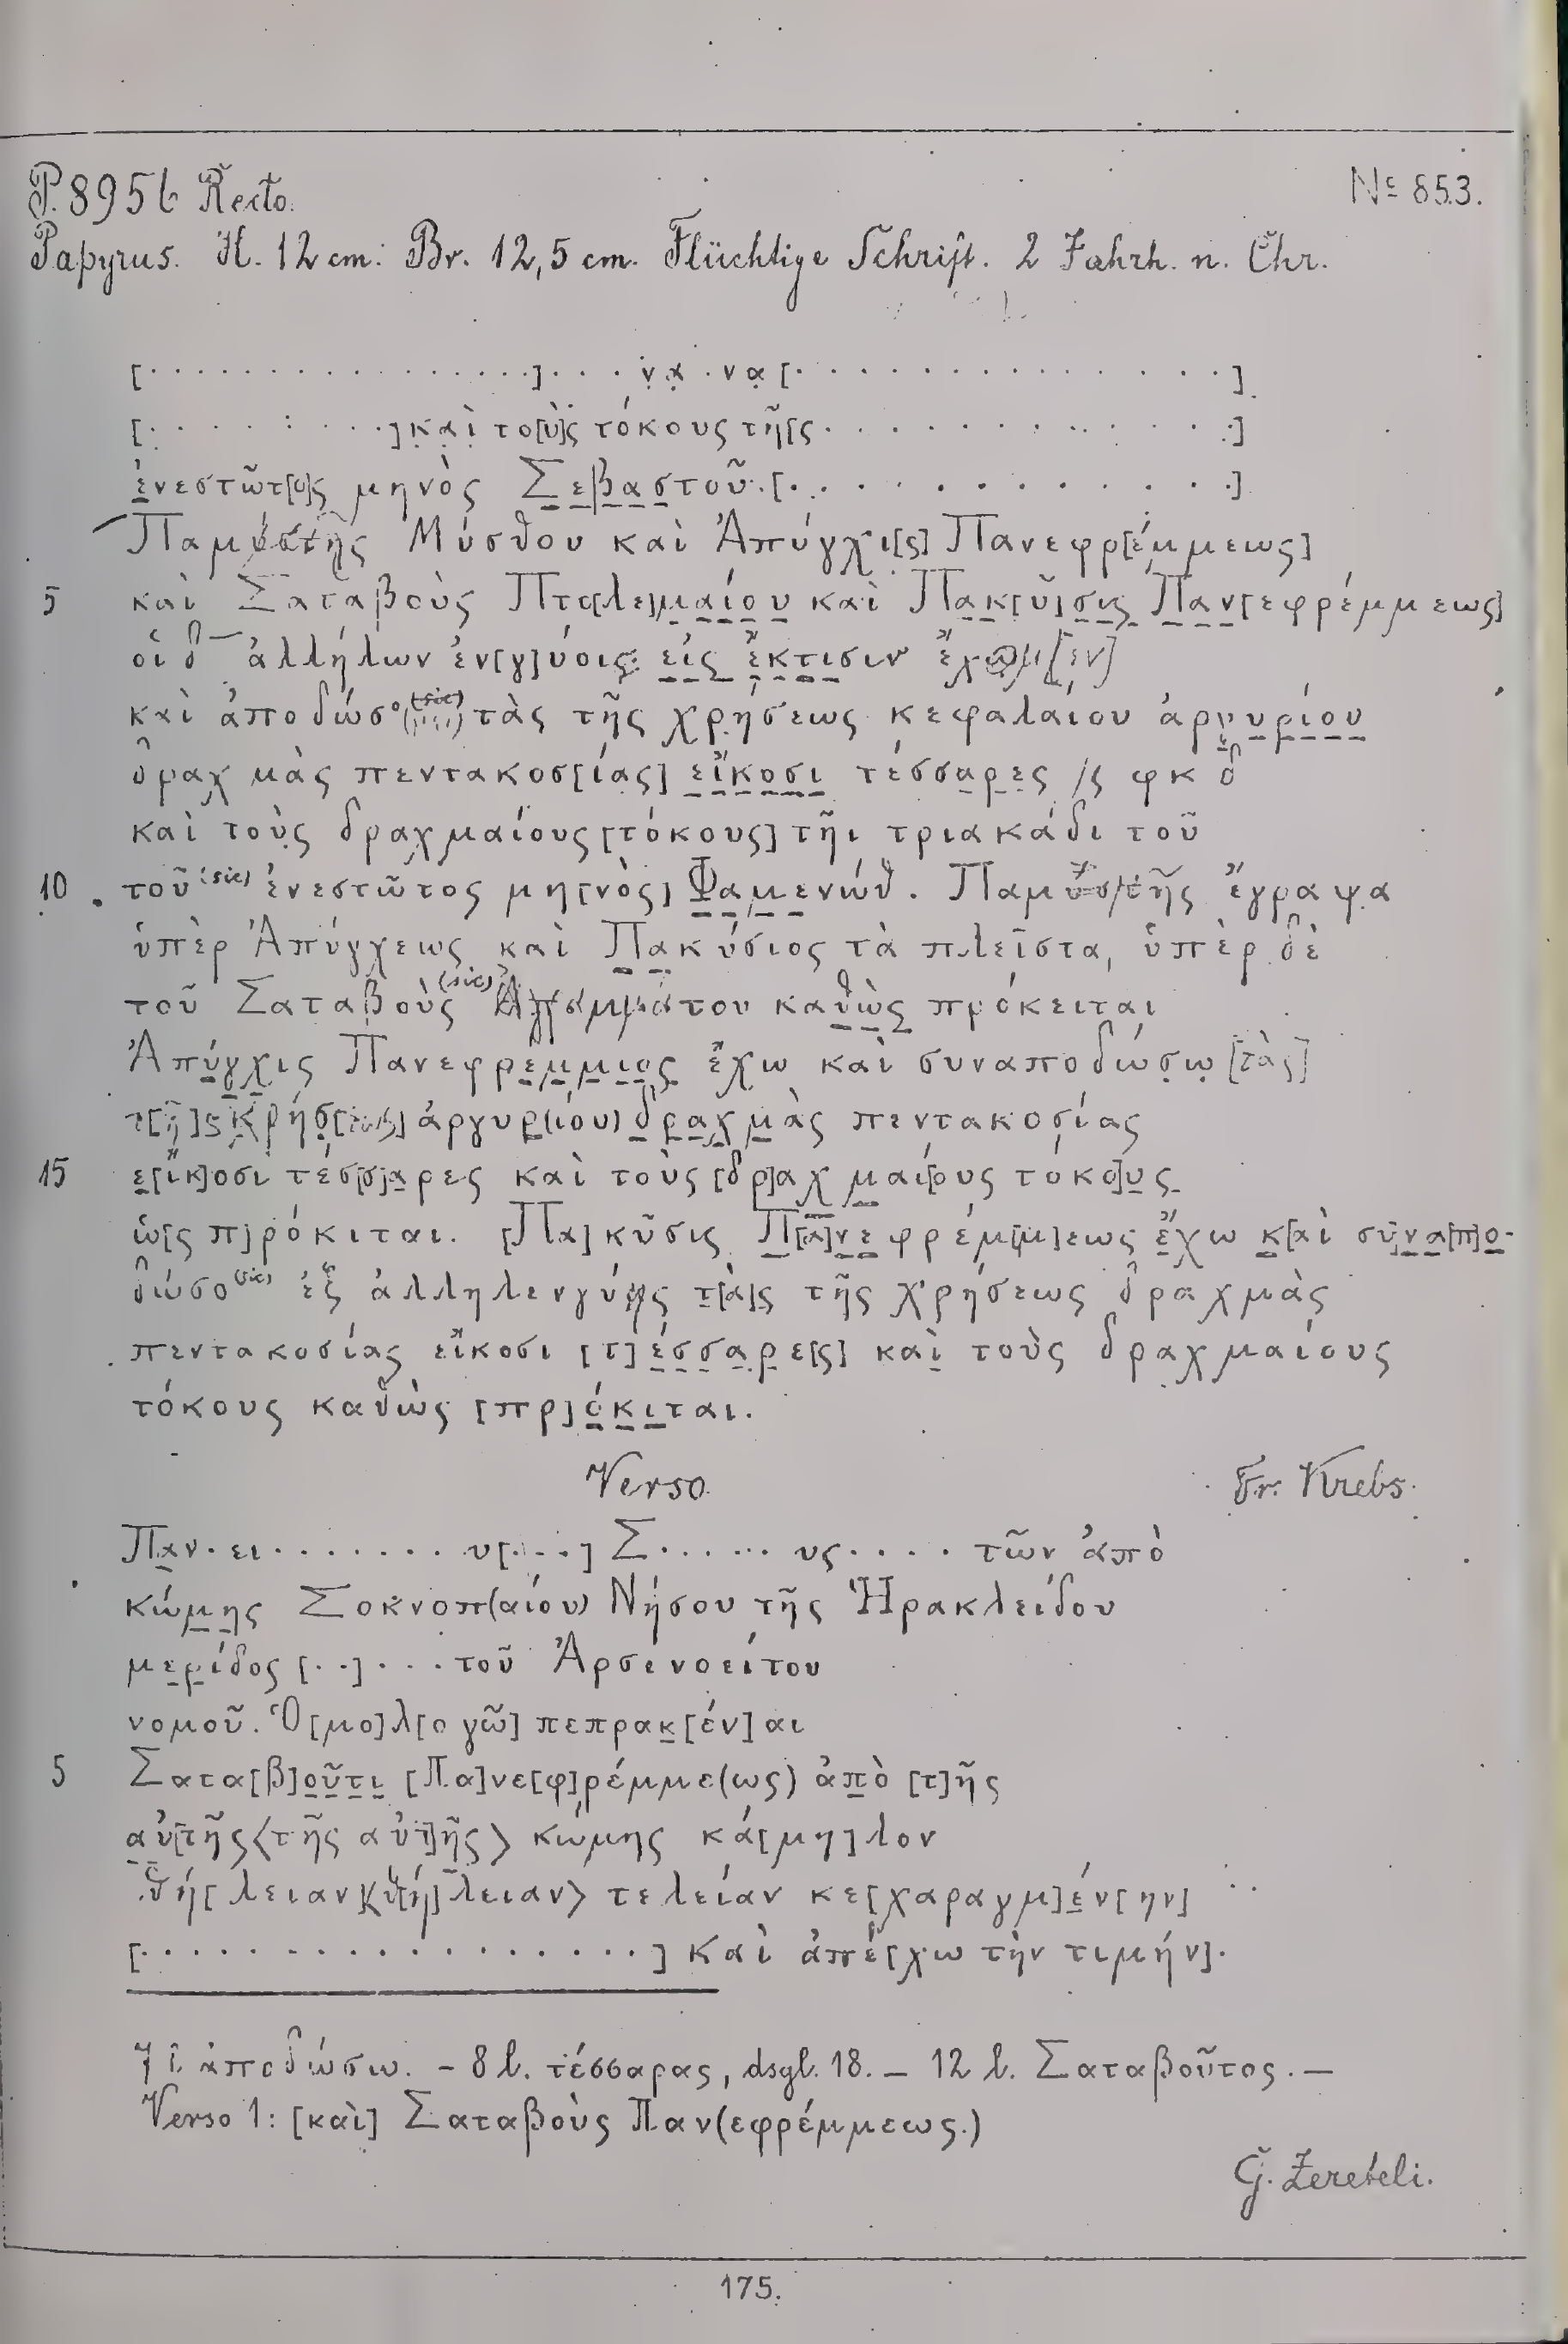 P. 8956 Recto. № 853.
Papyrus. H. 12 cm. Br. 12,5 cm. Flüchtige Schrift. 2 Jahrh. n. Chr.
[. . . . . . . . . . . . . . . .] . . . να . να [. . . . . . . . . . . . . .]
[. . . . . . . . .] καὶ το[ὺ]ς τόκους τῆ[ς . . . . . . . . . . . . .]
ἐνεστῶτ[ο]ς μηνὸς Σεβαστοῦ. [. . . . . . . . . . . .]
Παμύστης Μύσθου καὶ Ἀπύγχι[ς] Πανεφρ[έμμεως]
5 καὶ Σαταβοὺς Πτο[λε]μαίου καὶ Πακ[ῦ]σις Παν[εφρέμμεως]
οἱ δ ἀλλήλων ἐν[γ]ύοις εἰς ἔκτισιν ἔχωμ[εν]
καὶ ἀποδώσο (sic) τὰς τῆς χρήσεως κεφαλαίου ἀργυρίου
δραχμὰς πεντακοσ[ίας] εἴκοσι τέσσαρες /ς φκδ
καὶ τοὺς δραχμαίους [τόκους] τῆι τριακάδι τοῦ
10 τοῦ (sic) ἐνεστῶτος μη[νὸς] Φαμενώθ. Παμύστης ἔγραψα
ὑπὲρ Ἀπύγχεως καὶ Πακύσιος τὰ πλεῖστα, ὑπὲρ δὲ
τοῦ Σαταβοὺς (sic) Ἀγραμμάτου καθὼς πρόκειται
Ἀπύγχις Πανεφρεμμιος ἔχω καὶ συναποδώσω [τὰς]
τ[ῆ]ς κρήσ[εως] ἀργυρ(ίου) δραχμὰς πεντακοσίας
15 ε[ἴκ]οσι τέσ[σ]αρες καὶ τοὺς [δρ]αχμαί[ους τόκο]υς
ὡ[ς π]ρόκιται. [Πα]κῦσις Π[α]νεφρέμ[μ]εως ἔχω κ[αὶ σ]υνα[π]ο-
δώσο (sic) ἐξ ἀλληλενγύης τ[ὰ]ς τῆς χρήσεως δραχμὰς
πεντακοσίας εἴκοσι [τ]έσσαρε[ς] καὶ τοὺς δραχμαίους
τόκους καθὼς [πρ]όκιται.
Verso. Fr. Krebs.
Παν . ει . . . . . . . . υ[. . . .] Σ . . . . . . υς . . . . τῶν ἀπὸ
κώμης Σοκνοπ(αίου) Νήσου τῆς Ἡρακλείδου
μερίδος [. .] . . . τοῦ Ἀρσινοείτου
νομοῦ. Ὁ[μο]λ[ογῶ] πεπρακ[έν]αι
5 Σατα[β]οῦτι [Πα]νε[φ]ρέμμε(ως) ἀπὸ [τ]ῆς
αὐ[τῆς ⟨τῆς αὐτ]ῆς⟩ κώμης κά[μη]λον
θή[λειαν ⟨θ[ή]λειαν⟩ τελείαν κε[χαραγμ]έν[ην]
[. . . . . . . . . . . . . . . . .] καὶ ἀπέ[χω τὴν τιμήν].
7 l. ἀποδώσω. – 8 l. τέσσαρας, dsgl. 18. – 12 l. Σαταβοῦτος. —
Verso 1: [καὶ] Σαταβοὺς Παν(εφρέμμεως.)
G. Zereteli.
175.